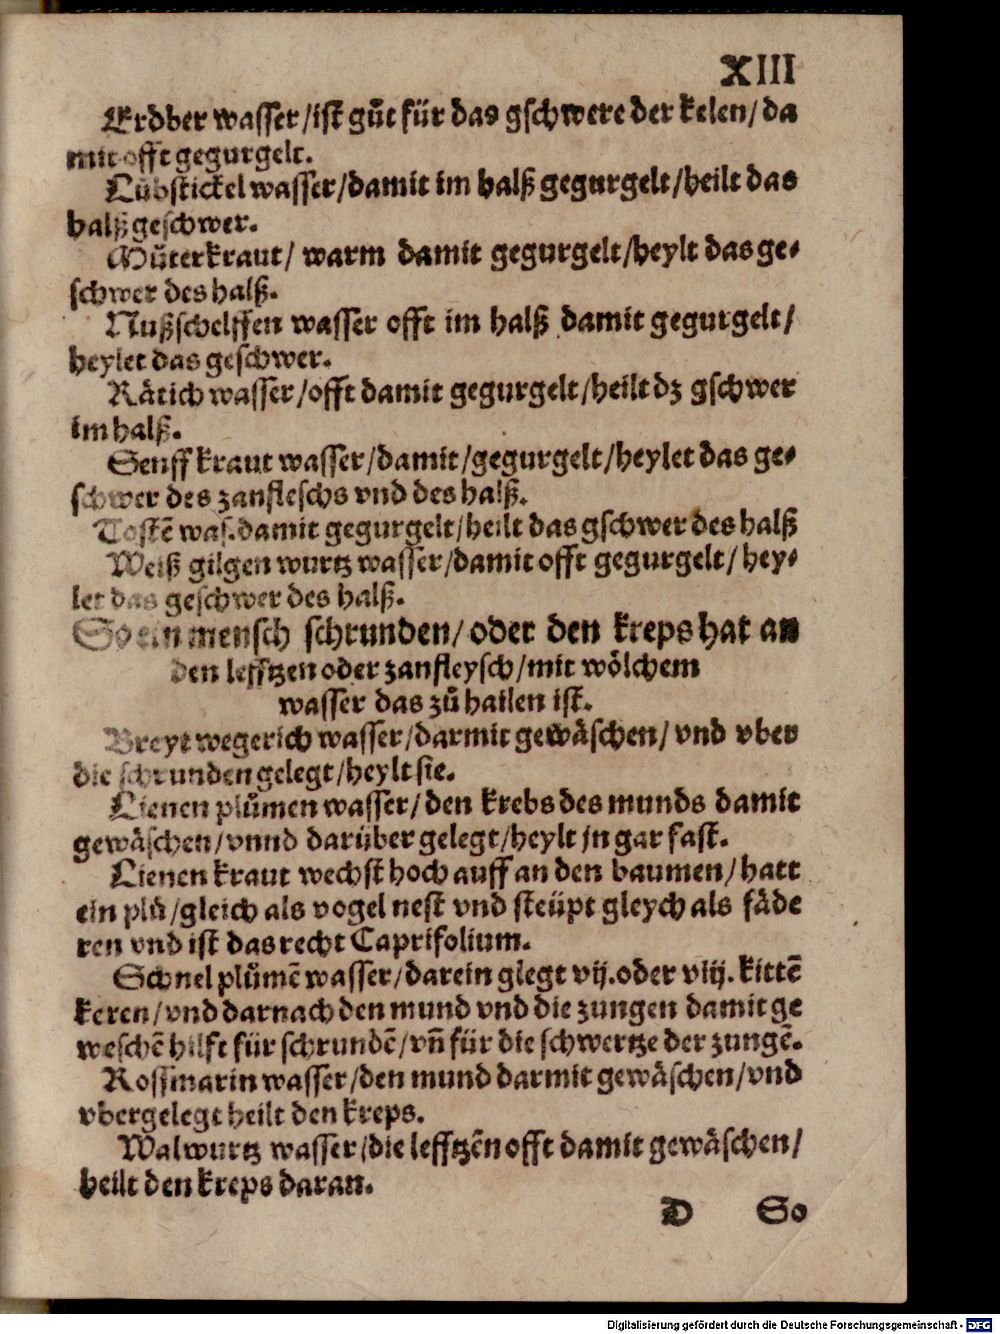 XIII
Erdber wasser/ist gůt für das gschwere der kelen/da
mit offt gegurgelt.
Lübstickel wasser/damit im halß gegurgelt/heilt das
halß geschwer.
Můterkraut/ warm damit gegurgelt/heylt das ge⸗
schwer des halß.
Nußschelffen wasser offt im halß damit gegurgelt/
heylet das geschwer.
Rätich wasser/offt damit gegurgelt/heilt dz gschwer
im halß.
Senff kraut wasser/damit/gegurgelt/heylet das ge⸗
schwer des zanfleschs vnd des halß.
Tostē was. damit gegurgelt/heilt das gschwer des halß
Weiß gilgen wurtz wasser/damit offt gegurgelt/ hey⸗
let das geschwer des halß.
So ein mensch schrunden/oder den kreps hat an
den lefftzen oder zanfleysch/mit wölchem
wasser das zů hailen ist.
Breyt wegerich wasser/darmit gewäschen/ vnd vber
die schrunden gelegt/heylt sie.
Lienen plůmen wasser/den krebs des munds damit
gewäschen/vnnd darüber gelegt/heylt jn gar fast.
Lienen kraut wechst hoch auff an den baumen/hatt
ein plů/gleich als vogel nest vnd steüpt gleych als fäde
ren vnd ist das recht Caprifolium.
Schnel plůmē wasser/darein glegt vij. oder viij. kittē
keren/vnd darnach den mund vnd die zungen damit ge
weschē hilft für schrundē/vn̄ für die schwertze der zungē.
Rossmarin wasser/den mund darmit gewäschen/vnd
vbergelegt heilt den kreps.
Walwurtz wasser/die lefftzēn offt damit gewäschen/
heilt den kreps daran.
D So
Digitalisierung gefördert durch die Deutsche Forschungsgemeinschaft - DFG